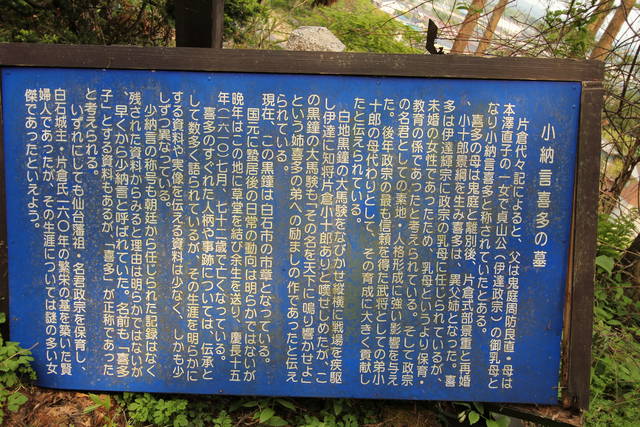 少納言喜多の墓
片倉代々記によると、父は鬼庭周防良直・母は
本澤直子の一女で貞山公(伊達政宗)の御乳母と
なり小納言喜多と称されていたとある。
喜多の母は鬼庭と離別後、片倉氏部景重と再婚
、小十郎景綱を生み喜多は、異父姉となった。喜
多は伊達輝宗に政宗の乳母に任じられているが、
未婚の女性であったため、乳母というより保育・
教育の係であったと考えられている。そして政宗
の名君としての素地・人格形成に強い影響を与え
た。後年政宗の最も信頼を得た武将としての弟小
十郎の母代わりとして、その育成に大きく貢献し
たと伝えられている。
白地黒鐘の大馬験をなびかせ縦横に戦場を疾駆
し伊達に知将片倉小十郎ありと喧せしめたが、こ
の黒鐘の大馬験も「その名を天下に鳴り響かせよ」
という姉喜多の弟への励ましの作であったと伝え
られている。
現在、この黒鐘は白石市の市章となっている。
国元に蟄居後の日常の動向は明らかではないが
晩年はこの地に草堂を結び余生を送り、慶長十五
年(一六一〇)七月、七十二歳で亡くなっている。
喜多のすぐれた人柄や事跡については、伝承と
して数多く語られているが、その生涯を明らかに
する資料や実像を伝える資料は少なく、しかも少
しずつ異なっている。
少納言の称号も朝廷から任じられた記録はなく
残された資料からみると理由は明らかではないが
、早くから少納言と呼ばれていた。名前も「喜多
子」とする資料もあるが、「喜多」が正称であった
と考えられる。
いずれにしても仙台藩祖・名君政宗を保育し、
白石城主・片倉氏二六〇年の繁栄の基を築いた賢
婦人であったが、その生涯については謎の多い女
傑であったといえよう。